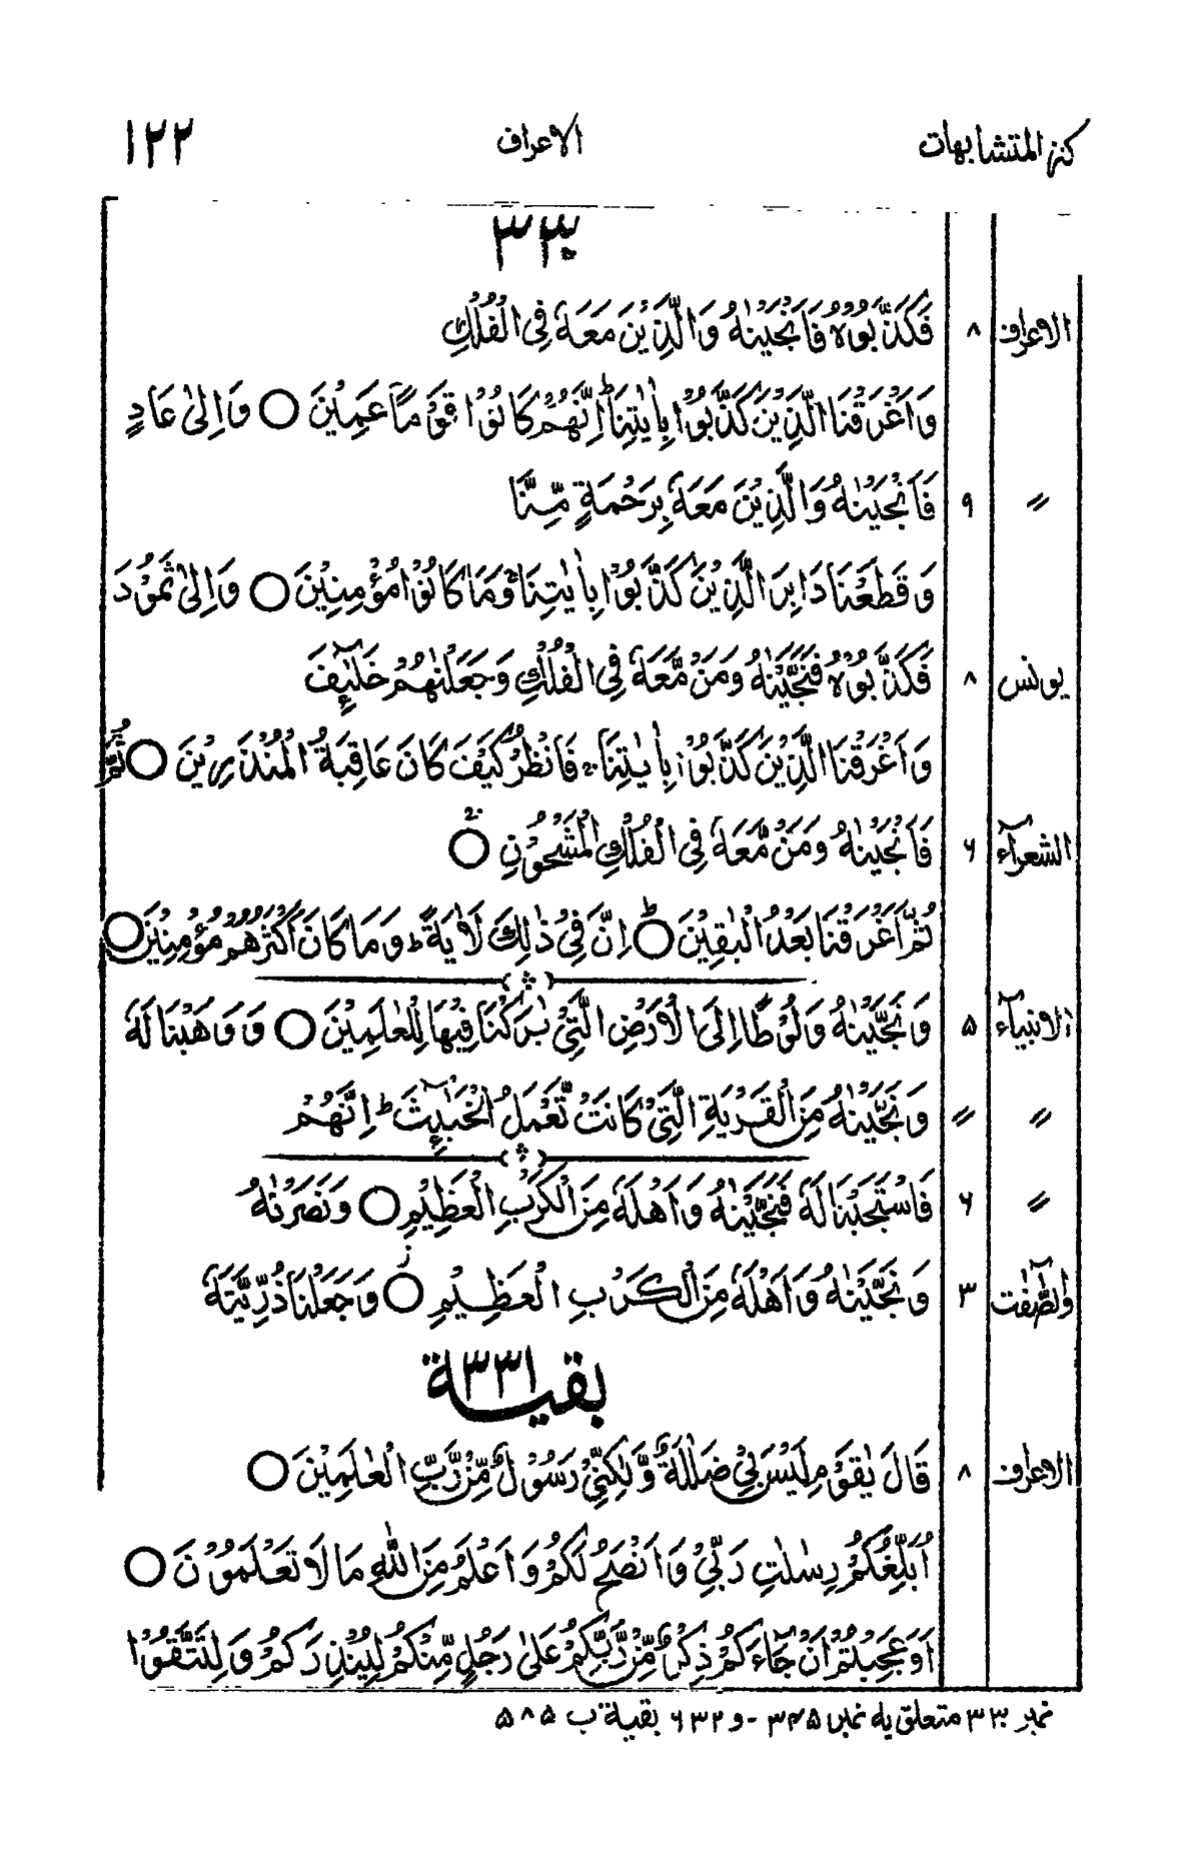 كنز المتشابهات الاعراف ١٢٢
٣٣٠
الاعراف ٨ فَكَذَّبُوْهُ فَاَنْجَيْنٰهُ وَالَّذِيْنَ مَعَهٗ فِى الْفُلْكِ
وَاَغْرَقْنَا الَّذِيْنَ كَذَّبُوْا بِاٰيٰتِنَا ؕ اِنَّهُمْ كَانُوْا قَوْمًا عَمِيْنَ ○ وَاِلٰى عَادٍ
〃 ٩ فَاَنْجَيْنٰهُ وَالَّذِيْنَ مَعَهٗ بِرَحْمَةٍ مِّنَّا
وَقَطَعْنَا دَابِرَ الَّذِيْنَ كَذَّبُوْا بِاٰيٰتِنَا وَمَا كَانُوْا مُؤْمِنِيْنَ ○ وَاِلٰى ثَمُوْدَ
يونس ٨ فَكَذَّبُوْهُ فَنَجَّيْنٰهُ وَمَنْ مَّعَهٗ فِى الْفُلْكِ وَجَعَلْنٰهُمْ خَلٰٓئِفَ
وَاَغْرَقْنَا الَّذِيْنَ كَذَّبُوْا بِاٰيٰتِنَا ۚ فَانْظُرْ كَيْفَ كَانَ عَاقِبَةُ الْمُنْذَرِيْنَ ○ ثُمَّ
الشعرآء ٦ فَاَنْجَيْنٰهُ وَمَنْ مَّعَهٗ فِى الْفُلْكِ الْمَشْحُوْنِ ○
ثُمَّ اَغْرَقْنَا بَعْدُ الْبٰقِيْنَ ○ اِنَّ فِيْ ذٰلِكَ لَاٰيَةً ؕ وَمَا كَانَ اَكْثَرُهُمْ مُّؤْمِنِيْنَ ○
الانبيآء ۵ وَنَجَّيْنٰهُ وَلُوْطًا اِلَى الْاَرْضِ الَّتِيْ بٰرَكْنَا فِيْهَا لِلْعٰلَمِيْنَ ○ وَوَهَبْنَا لَهٗ
〃 〃 وَنَجَّيْنٰهُ مِنَ الْقَرْيَةِ الَّتِيْ كَانَتْ تَّعْمَلُ الْخَبٰٓئِثَ ؕ اِنَّهُمْ
〃 ٦ فَاسْتَجَبْنَا لَهٗ فَنَجَّيْنٰهُ وَاَهْلَهٗ مِنَ الْكَرْبِ الْعَظِيْمِ ○ وَنَصَرْنٰهُ
والصّٰٓفٰت ٣ وَنَجَّيْنٰهُ وَاَهْلَهٗ مِنَ الْكَرْبِ الْعَظِيْمِ ○ وَجَعَلْنَا ذُرِّيَّتَهٗ
بقية ٣٣١
الاعراف ٨ قَالَ يٰقَوْمِ لَيْسَ بِيْ ضَلٰلَةٌ وَّلٰكِنِّيْ رَسُوْلٌ مِّنْ رَّبِّ الْعٰلَمِيْنَ ○
اُبَلِّغُكُمْ رِسٰلٰتِ رَبِّيْ وَاَنْصَحُ لَكُمْ وَاَعْلَمُ مِنَ اللّٰهِ مَا لَا تَعْلَمُوْنَ ○
اَوَعَجِبْتُمْ اَنْ جَآءَكُمْ ذِكْرٌ مِّنْ رَّبِّكُمْ عَلٰى رَجُلٍ مِّنْكُمْ لِيُنْذِرَكُمْ وَلِتَتَّقُوْا
نمبر ٣٣٠ متعلق به نمبر ٣٤۵ - و ٦٣٢ بقية ب ۵٨۵